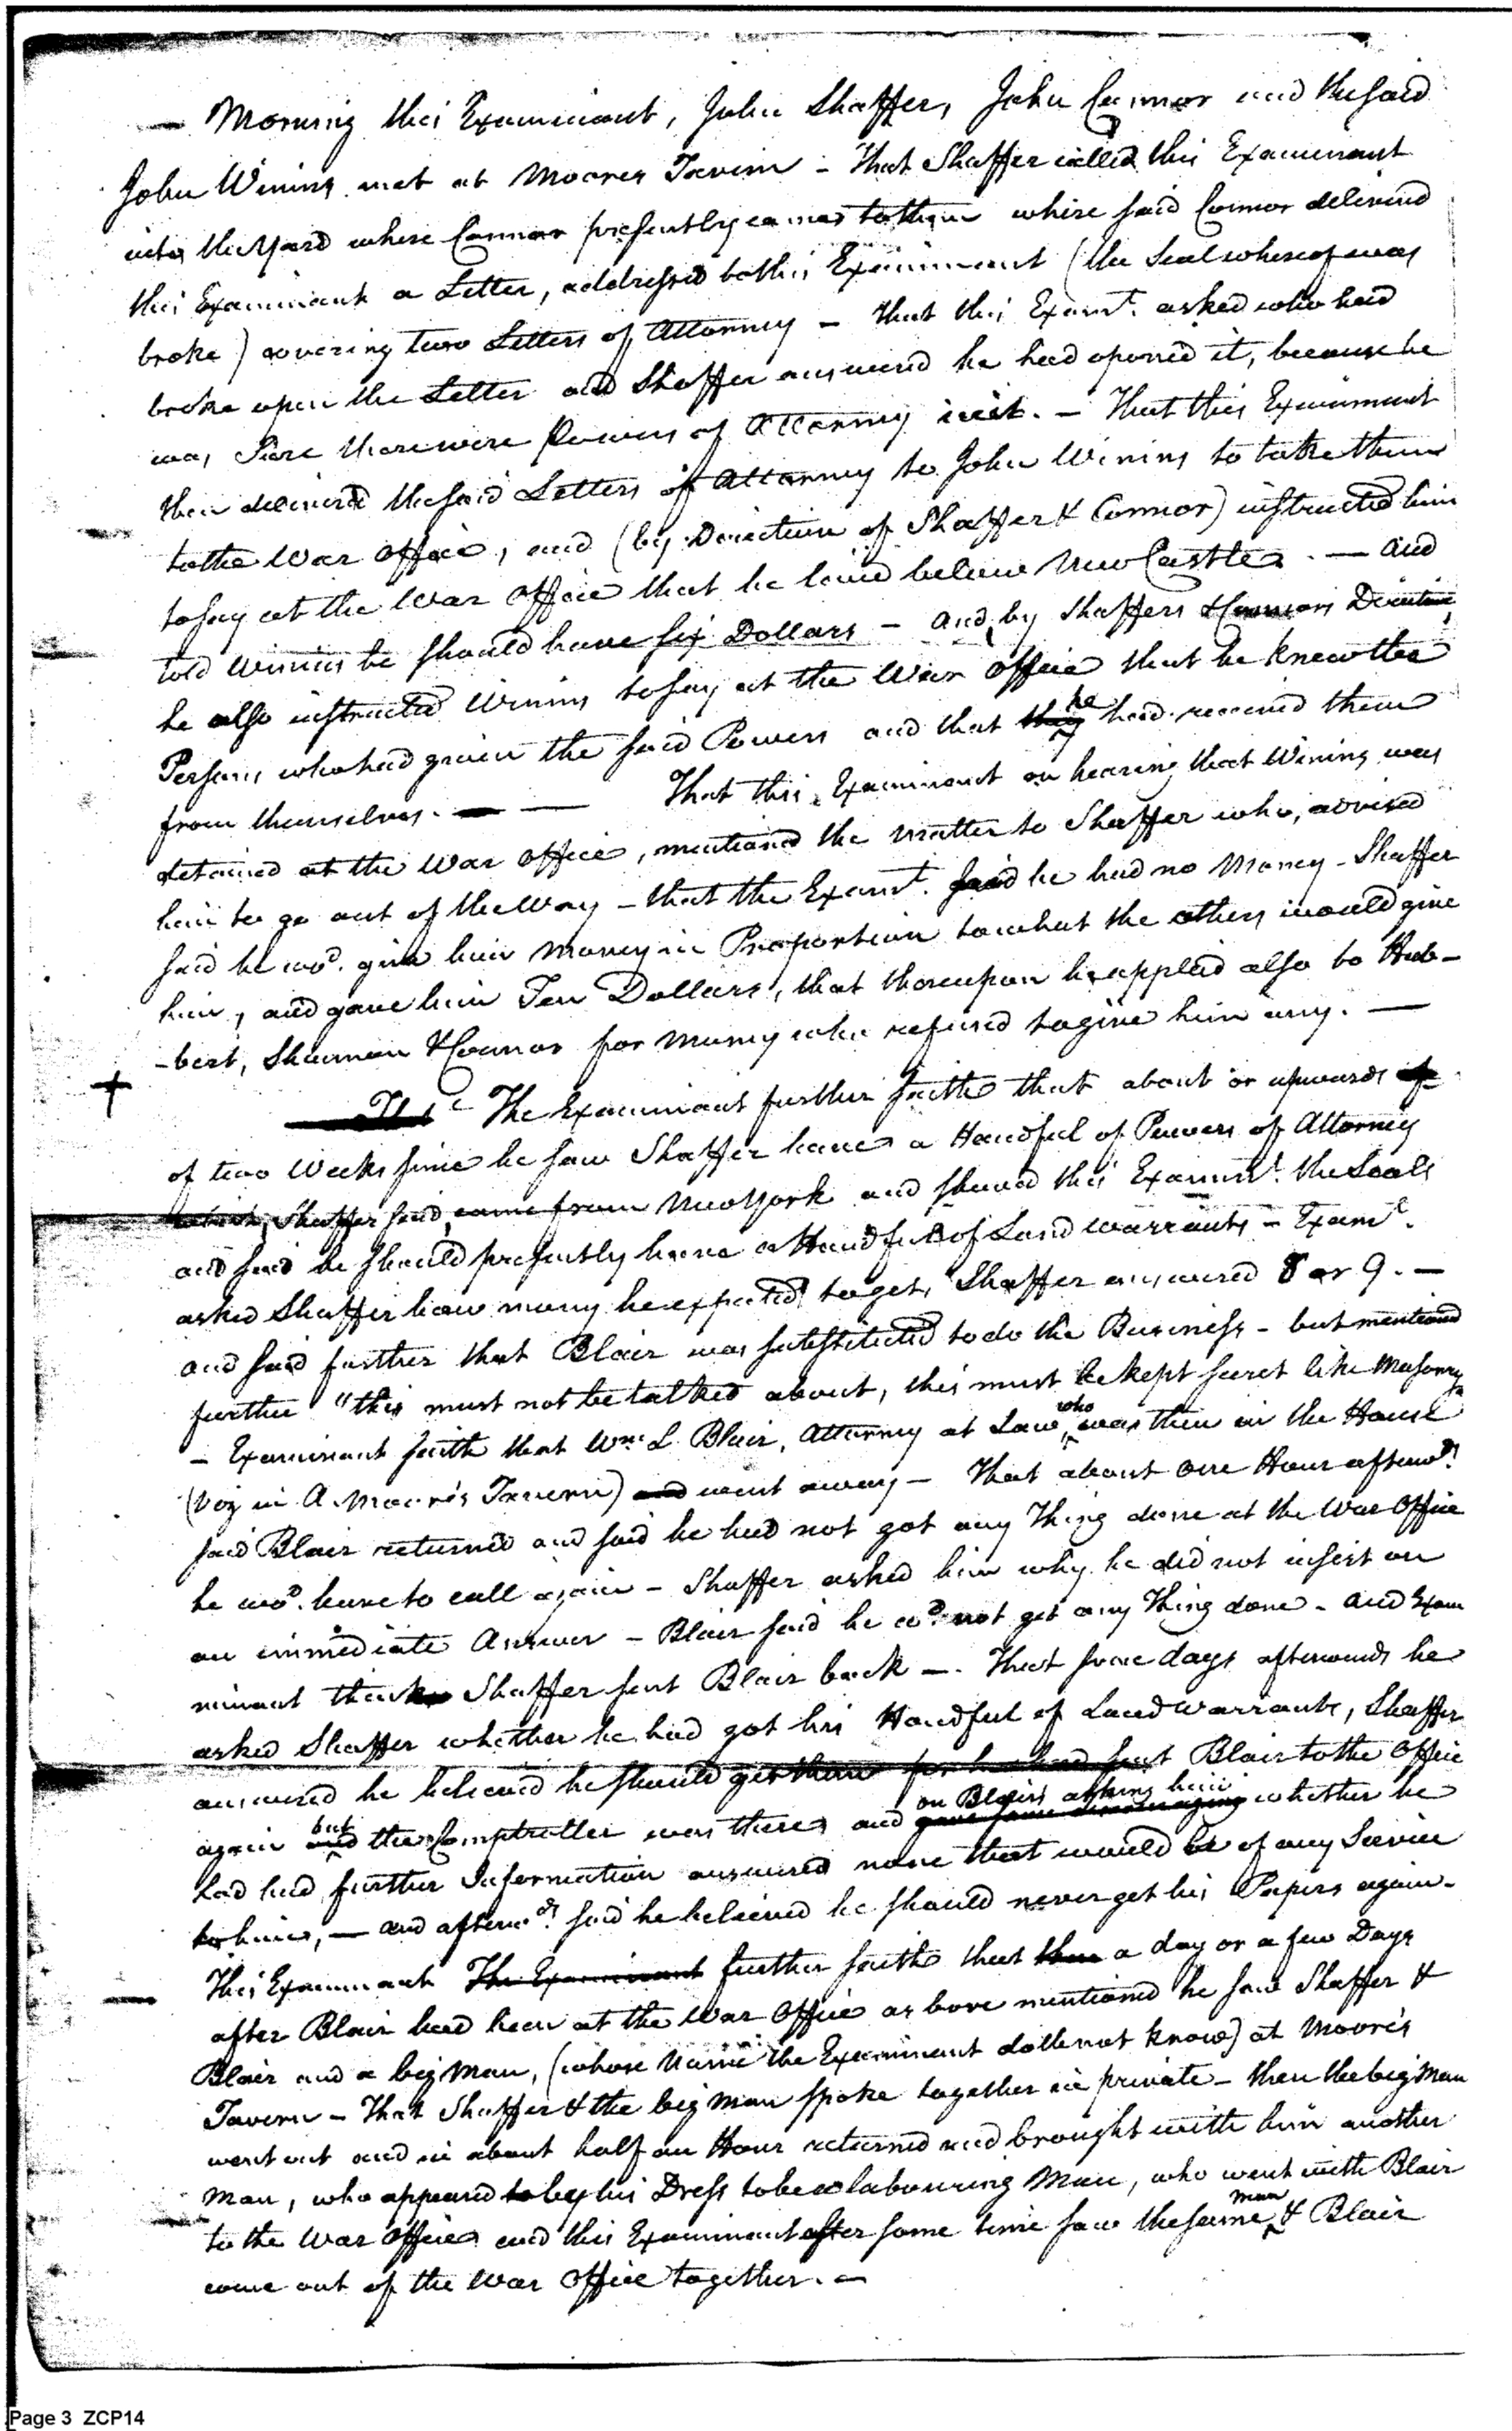 — Morning this Examinant, John Shaffer, John Connor and the said
John Wining met at Moores Tavern - That Shaffer called this Examinant
into the Yard where Connor presently came to them where said Connor delivered
this Examinant a Letter, addressed to this Examinant (the Seal whereof was
broke) covering two Letters of Attorney — that this Examt. asked who had
broke open the Letter and Shaffer answered he had opened it, because he
was sure there were Powers of Attorney in it. — That this Examinant
then delivered the said Letters of Attorney to John Wining to take them
to the War Office, and (by Direction of Shaffer & Connor) instructed him
to say at the War Office that he lived below New Castle. — and
told Wining he should have six Dollars — and by Shaffers & Connors Direction,
he also instructed Wining to say at the War Office that he knew the
Persons who had given the said Powers and that they he had received them
from themselves. — — That this Examinant on hearing that Wining was
detained at the War Office, mentioned the matter to Shaffer who, advised
him to go out of the Way — that the Examt. said he had no Money - Shaffer
said he wod. give him Money in Proportion to what the others would give
him, and gave him Ten Dollars, that thereupon he applied also to Hub-
-bert, Sherman & Connor for Money who refused to give him any. —
The Examinant further saith that about or upwards of
of two Weeks since he saw Shaffer have a Handful of Powers of Attorney
which Shaffer said came from New York and shewed this Examint. the Seals
and said he should presently have a Handful of Land Warrants - Examt.
asked Shaffer how many he expected to get, Shaffer answered 8 or 9. —
and said further that Blair was substituted to do the Business - but mentioned
further "this must not be talked about, this must be kept secret like Masonry
- Examinant saith that Wm. L. Blair, Attorney at Law, who was then in the House
(viz in A. Moore's Tavern) and went away — That about one Hour afterwds.
said Blair returned and said he had not got any Thing done at the War Office
he wod. have to call again - Shaffer asked him why he did not insist on
an immediate Answer - Blair said he cod. not get any Thing done - and Exam
minant thinks Shaffer sent Blair back —. That some days afterwards he
asked Shaffer whether he had got his Handful of Land Warrants, Shaffer
answered he believed he should get them for he had sent Blair to the Office
again and but the Comptroller was there and gave some discouraging on Blair's asking him whether he
had had further Information answered none that would be of any Service
to him, — and afterwds. said he believed he should never get his Papers again.
This Examinant The Examinant further saith that then a day or a few Days
after Blair had been at the War Office as bove mentioned he saw Shaffer &
Blair and a big Man, (whose Name the Examinant doth not know) at Moore's
Tavern - That Shaffer & the big Man spoke together in private - then the big Man
went out and in about half an Hour returned and brought with him another
Man, who appeared to by his Dress to be a labouring Man, who went with Blair
to the War Office and this Examinant after some time saw the same man & Blair
come out of the War Office together. —
Page 3 ZCP14